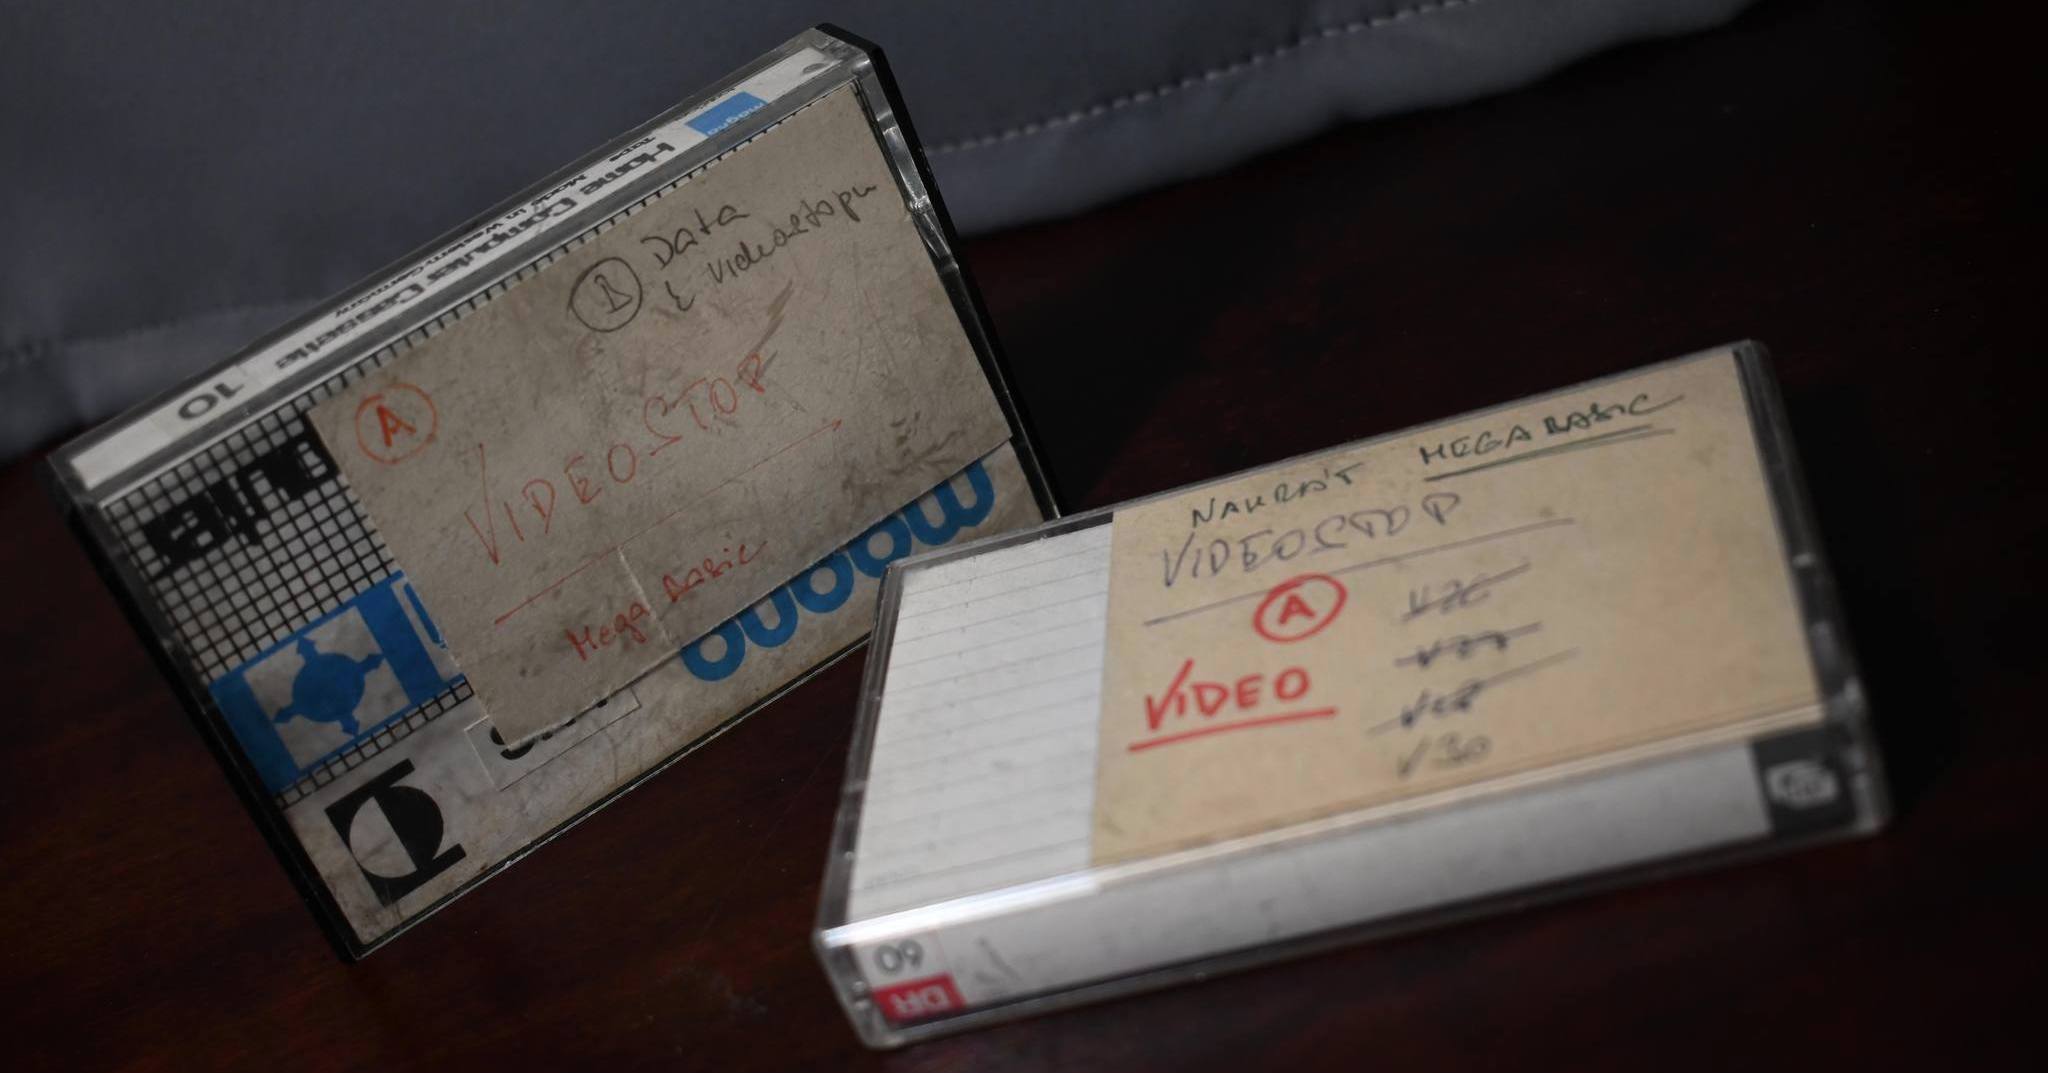 magna
Home Computer Cassette
Tape Made in Western-Germany
10
A
B Data
k Videostopu
VIDEOSTOP
Mega Basic
magna
NAHRÁT MEGA BASIC
VIDEOSTOP
A
VIDEO
V30
60
DR